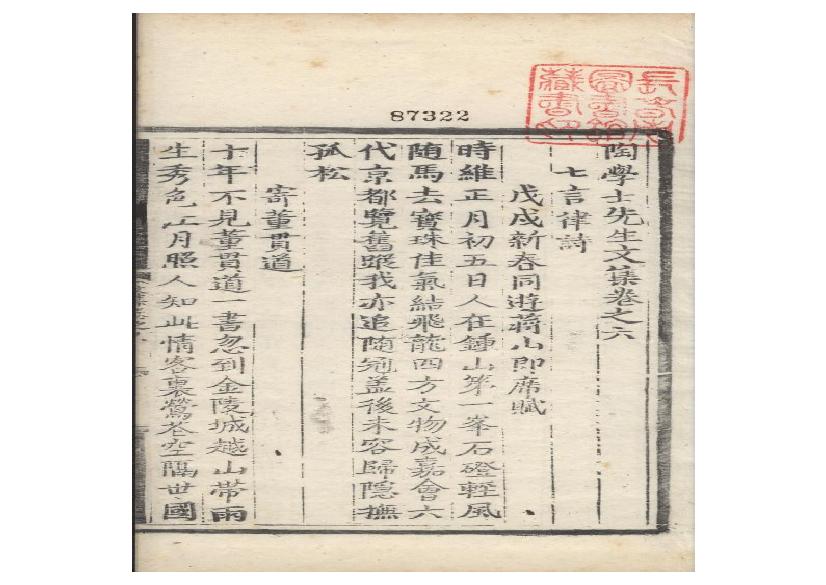 87322
陶學士先生文集卷之六
七言律詩
戊戌新春同遊蔣山即席賦
時維正月初五日人在鍾山第一峯石磴輕風
随馬去寶珠佳氣結飛龍四方文物成嘉會六
代京都覽舊蹤我亦追随冠盖後未容歸隐撫
孤松
寄董貫道
十年不見董貫道一書忽到金陵城越山帶雨
生秀色江月照人知此情客裏鶯花空隔世國